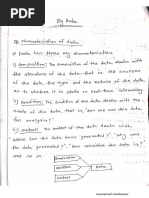 Big Data
Characteristics of data.
Data has three key characteristics.
i) Composition: The composition of the data deals with
the structure of the data, that is, the sources
of data, the types, and the nature of the data
as to whether it is static or real-time streaming.
ii) Condition: The condition of the data deals with the
state of data, that is, "can one use this data as is
for analysis?"
iii) Context: The context of the data deals with
where has this data been generated?", "why was
the data generated?", "How sensitive is the data?",
and so on.
Composition
Condition
Data
Context
Scanned with CamScanner